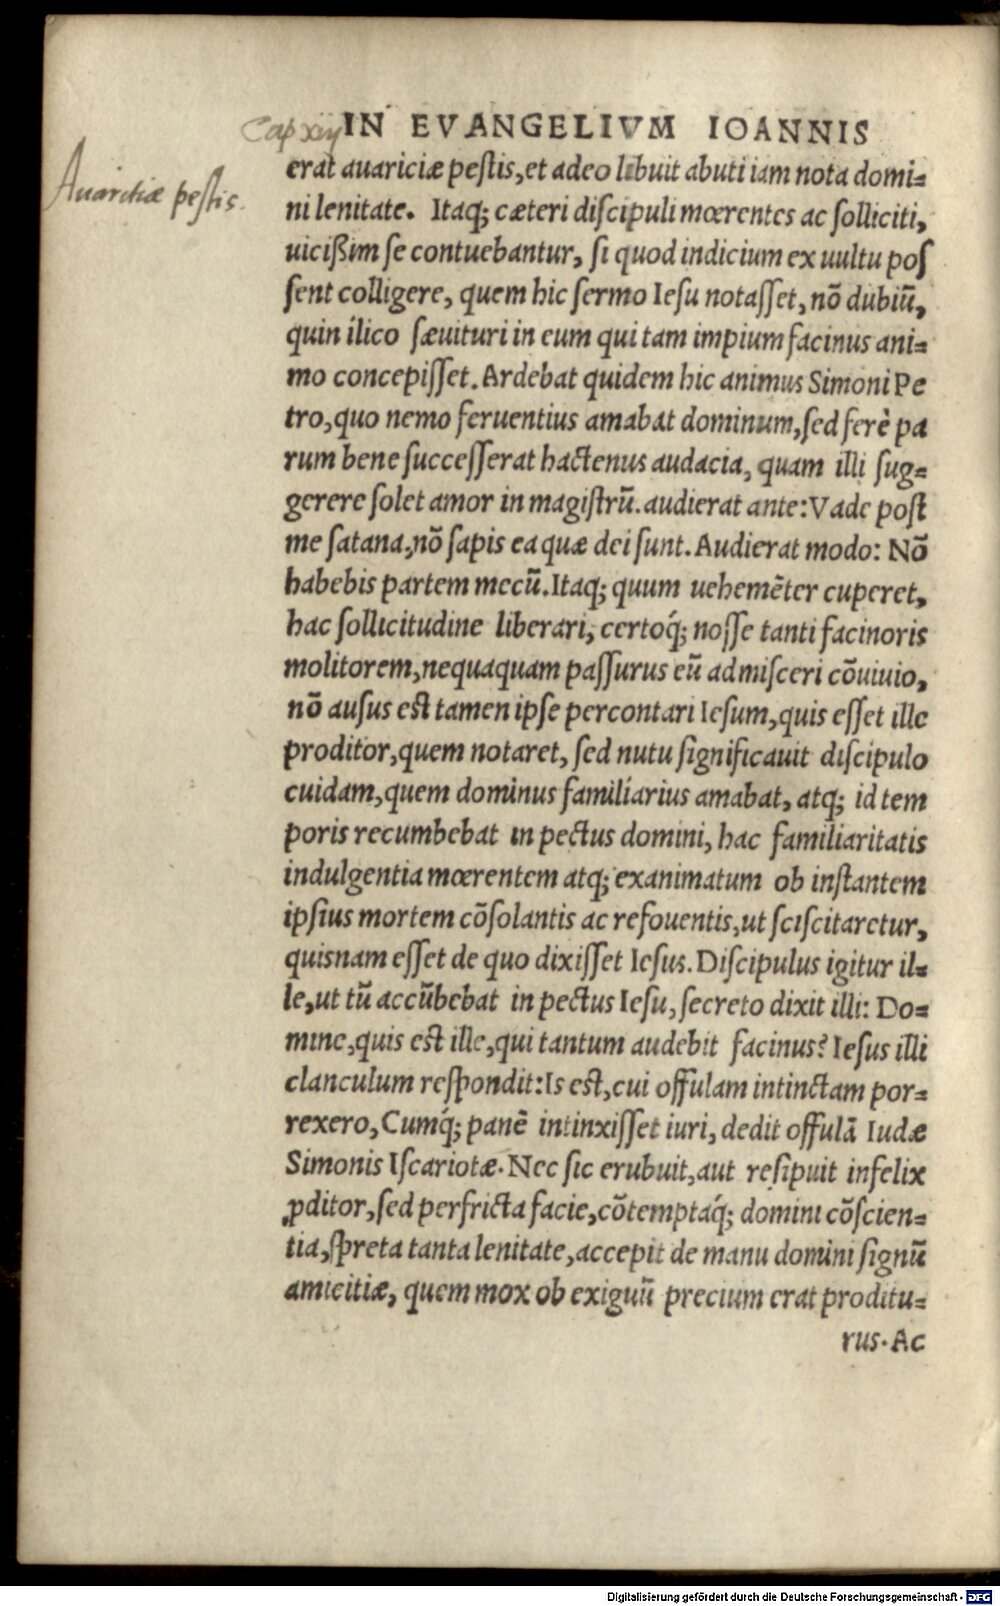 Cap xiij IN EVANGELIVM IOANNIS
Auaritiæ pestis.
erat auariciæ pestis, et adeo libuit abuti iam nota domi=
ni lenitate. Itaq; cæteri discipuli mœrentes ac solliciti,
uicißim se contuebantur, si quod indicium ex uultu pos
sent colligere, quem hic sermo Iesu notasset, nõ dubiũ,
quin ílico sæuituri in eum qui tam impium facinus ani=
mo concepisset. Ardebat quidem hic animus Simoni Pe
tro, quo nemo feruentius amabat dominum, sed ferè pa
rum bene successerat hactenus audacia, quam illi sug=
gerere solet amor in magistrũ. audierat ante: Vade post
me satana, nõ sapis ea quæ dei sunt. Audierat modo: Nõ
habebis partem mecũ. Itaq; quum uehemẽter cuperet,
hac sollicitudine liberari, certoq́; nosse tanti facinoris
molitorem, nequaquam passurus eũ admisceri cõuiuio,
nõ ausus est tamen ipse percontari Iesum, quis esset ille
proditor, quem notaret, sed nutu significauit discipulo
cuidam, quem dominus familiarius amabat, atq; id tem
poris recumbebat in pectus domini, hac familiaritatis
indulgentia mœrentem atq; exanimatum ob instantem
ipsius mortem cõsolantis ac refouentis, ut sciscitaretur,
quisnam esset de quo dixisset Iesus. Discipulus igitur il=
le, ut tũ accũbebat in pectus Iesu, secreto dixit illi: Do=
mine, quis est ille, qui tantum audebit facinus? Iesus illi
clanculum respondit: Is est, cui offulam intinctam por=
rexero, Cumq́; panẽ intinxisset iuri, dedit offulã Iudæ
Simonis Iscariotæ. Nec sic erubuit, aut resipuit infelix
ꝓditor, sed perfricta facie, cõtemptaq́; domini cõscien=
tia, spreta tanta lenitate, accepit de manu domini signũ
amicitiæ, quem mox ob exiguũ precium erat proditu=
rus. Ac
Digitalisierung gefördert durch die Deutsche Forschungsgemeinschaft - DFG